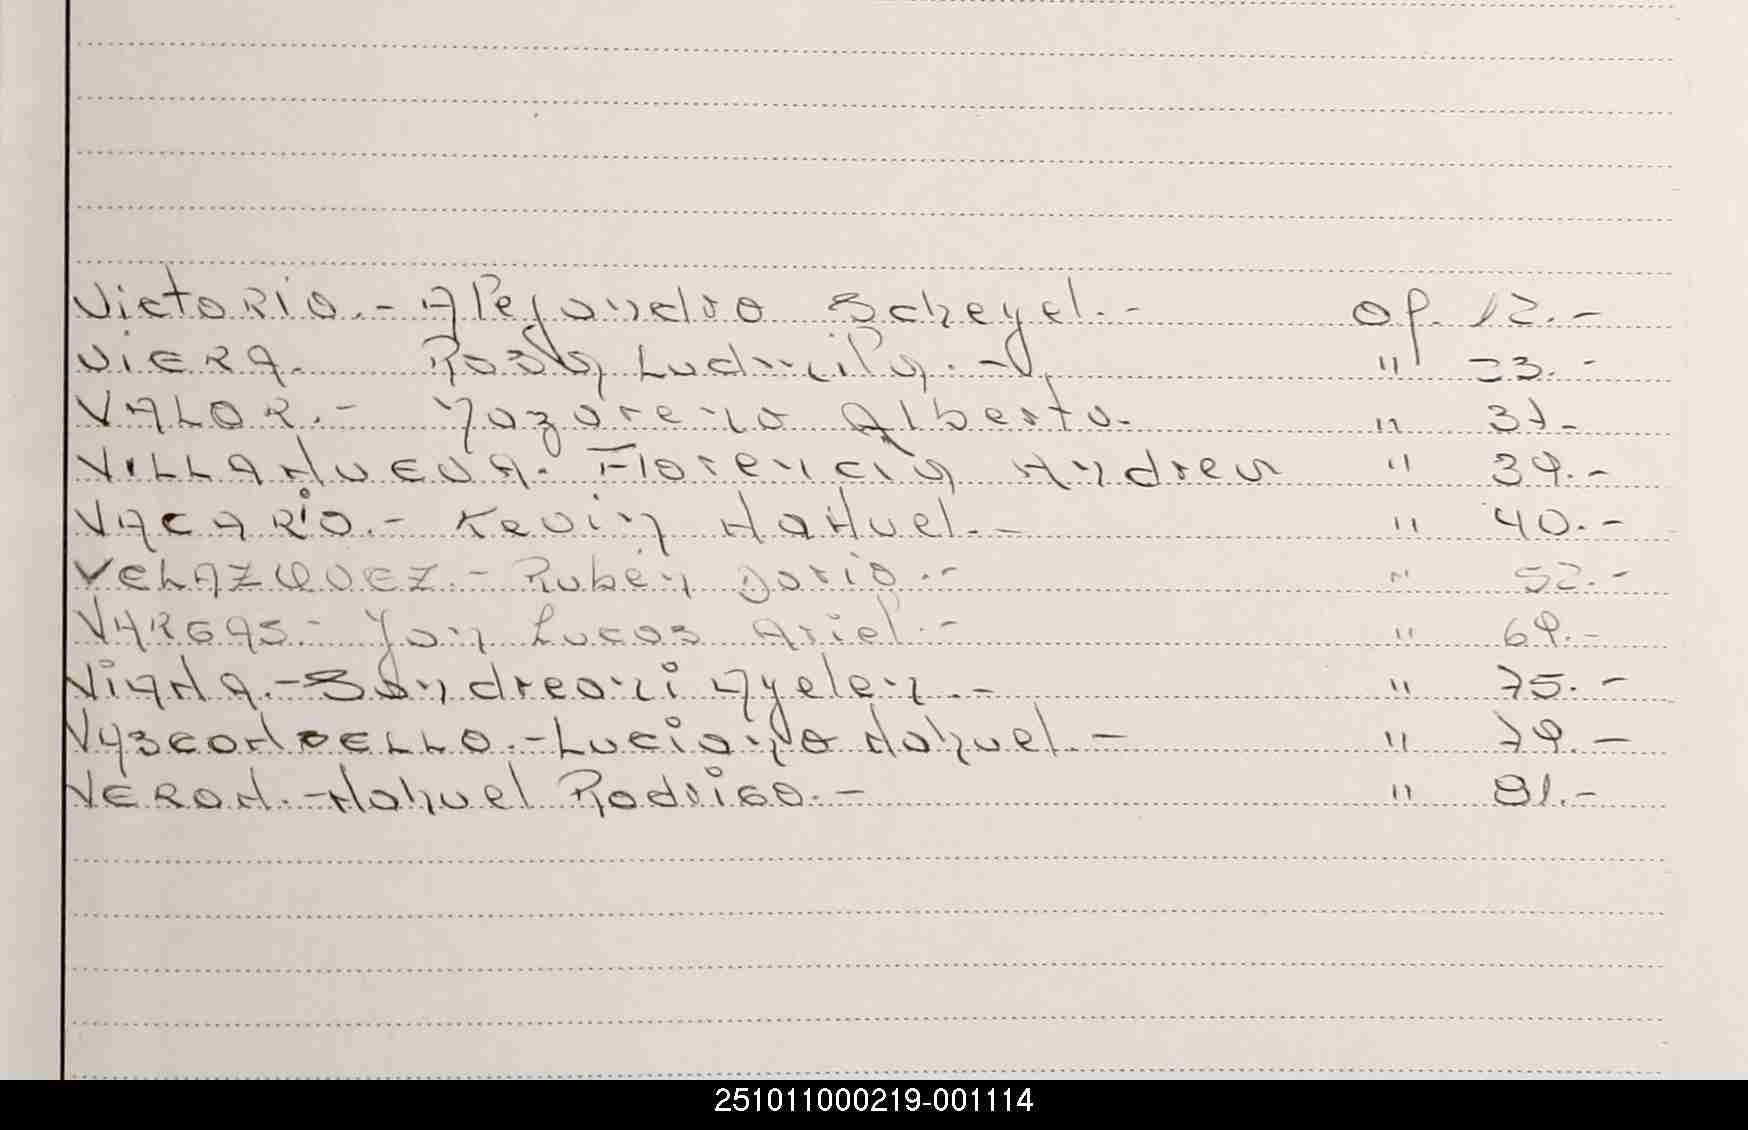 VictoRio.- Alejandro Scheyel.- of. 12.-
ViERA. Rosa Ludmila.- " 23.-
VALOR.- Nazareno Alberto.- " 37.-
VILLANUEVA. Florencia Andrea " 39.-
VACARIO.- Kevin Nahuel.- " 40.-
VELAZQUEZ.- Ruben Dario.- " 52.-
VARGAS- Jon Lucas Ariel.- " 69.-
ViANA.- Sandreani Ayelen.- " 75.-
VASCONCELLO.- Luciano Nahuel.- " 79.-
VERON.- Nahuel Rodrigo.- " 81.-
251011000219-001114